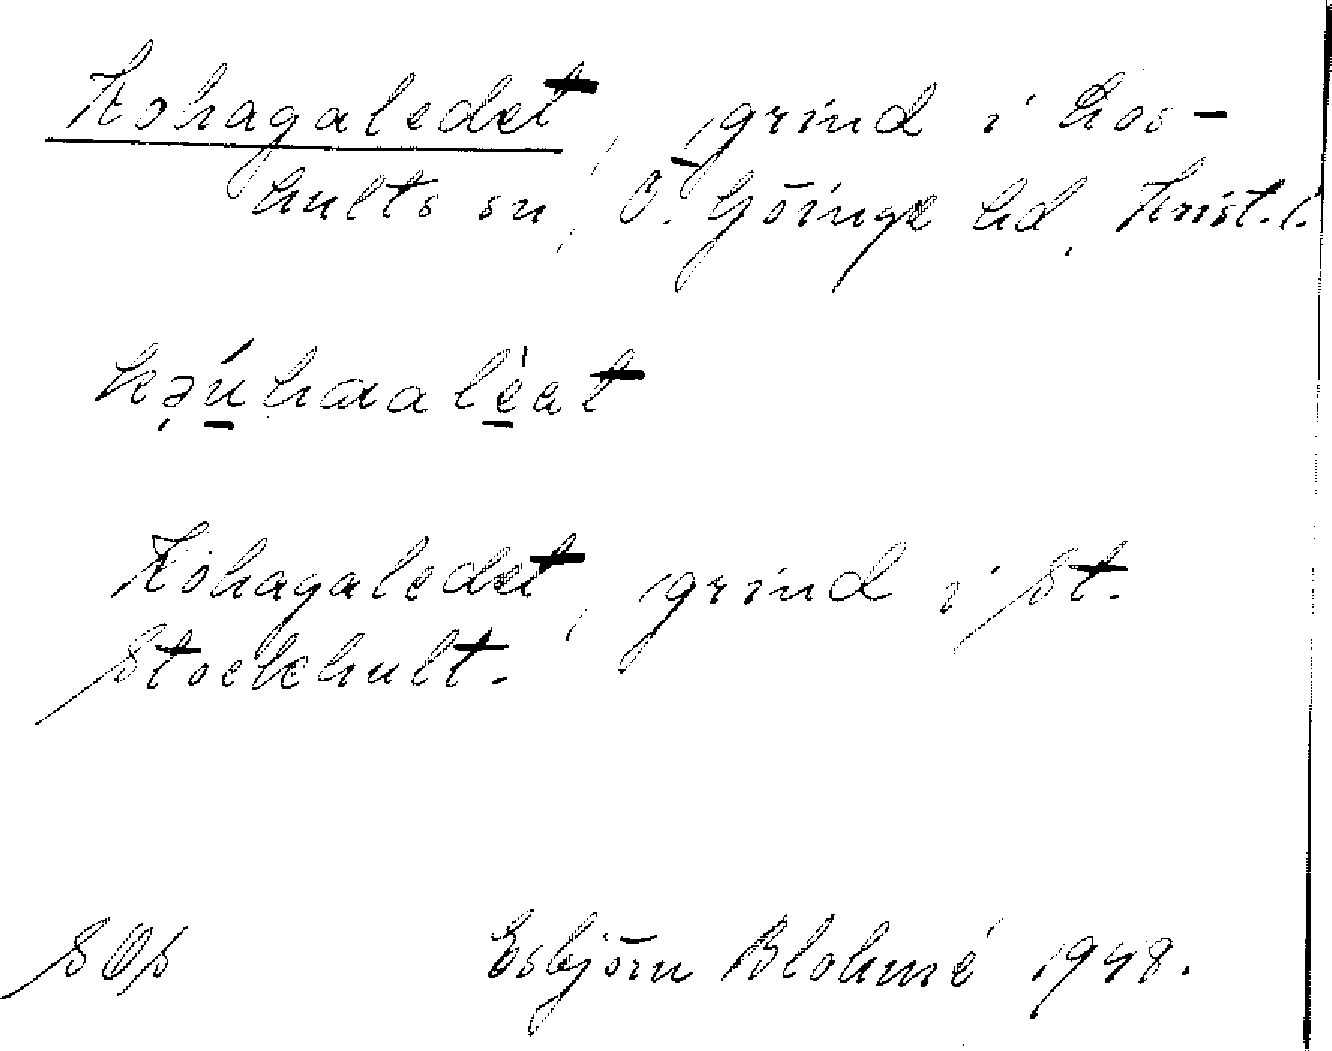 Kohagaledet, grind i Los-
hults sn, Ö. Göinge hd, Krist. l.
kəúhaalèat
Kohagaledet, grind i St.
Stockhult.
SOS Esbjörn Blohmé 1948.